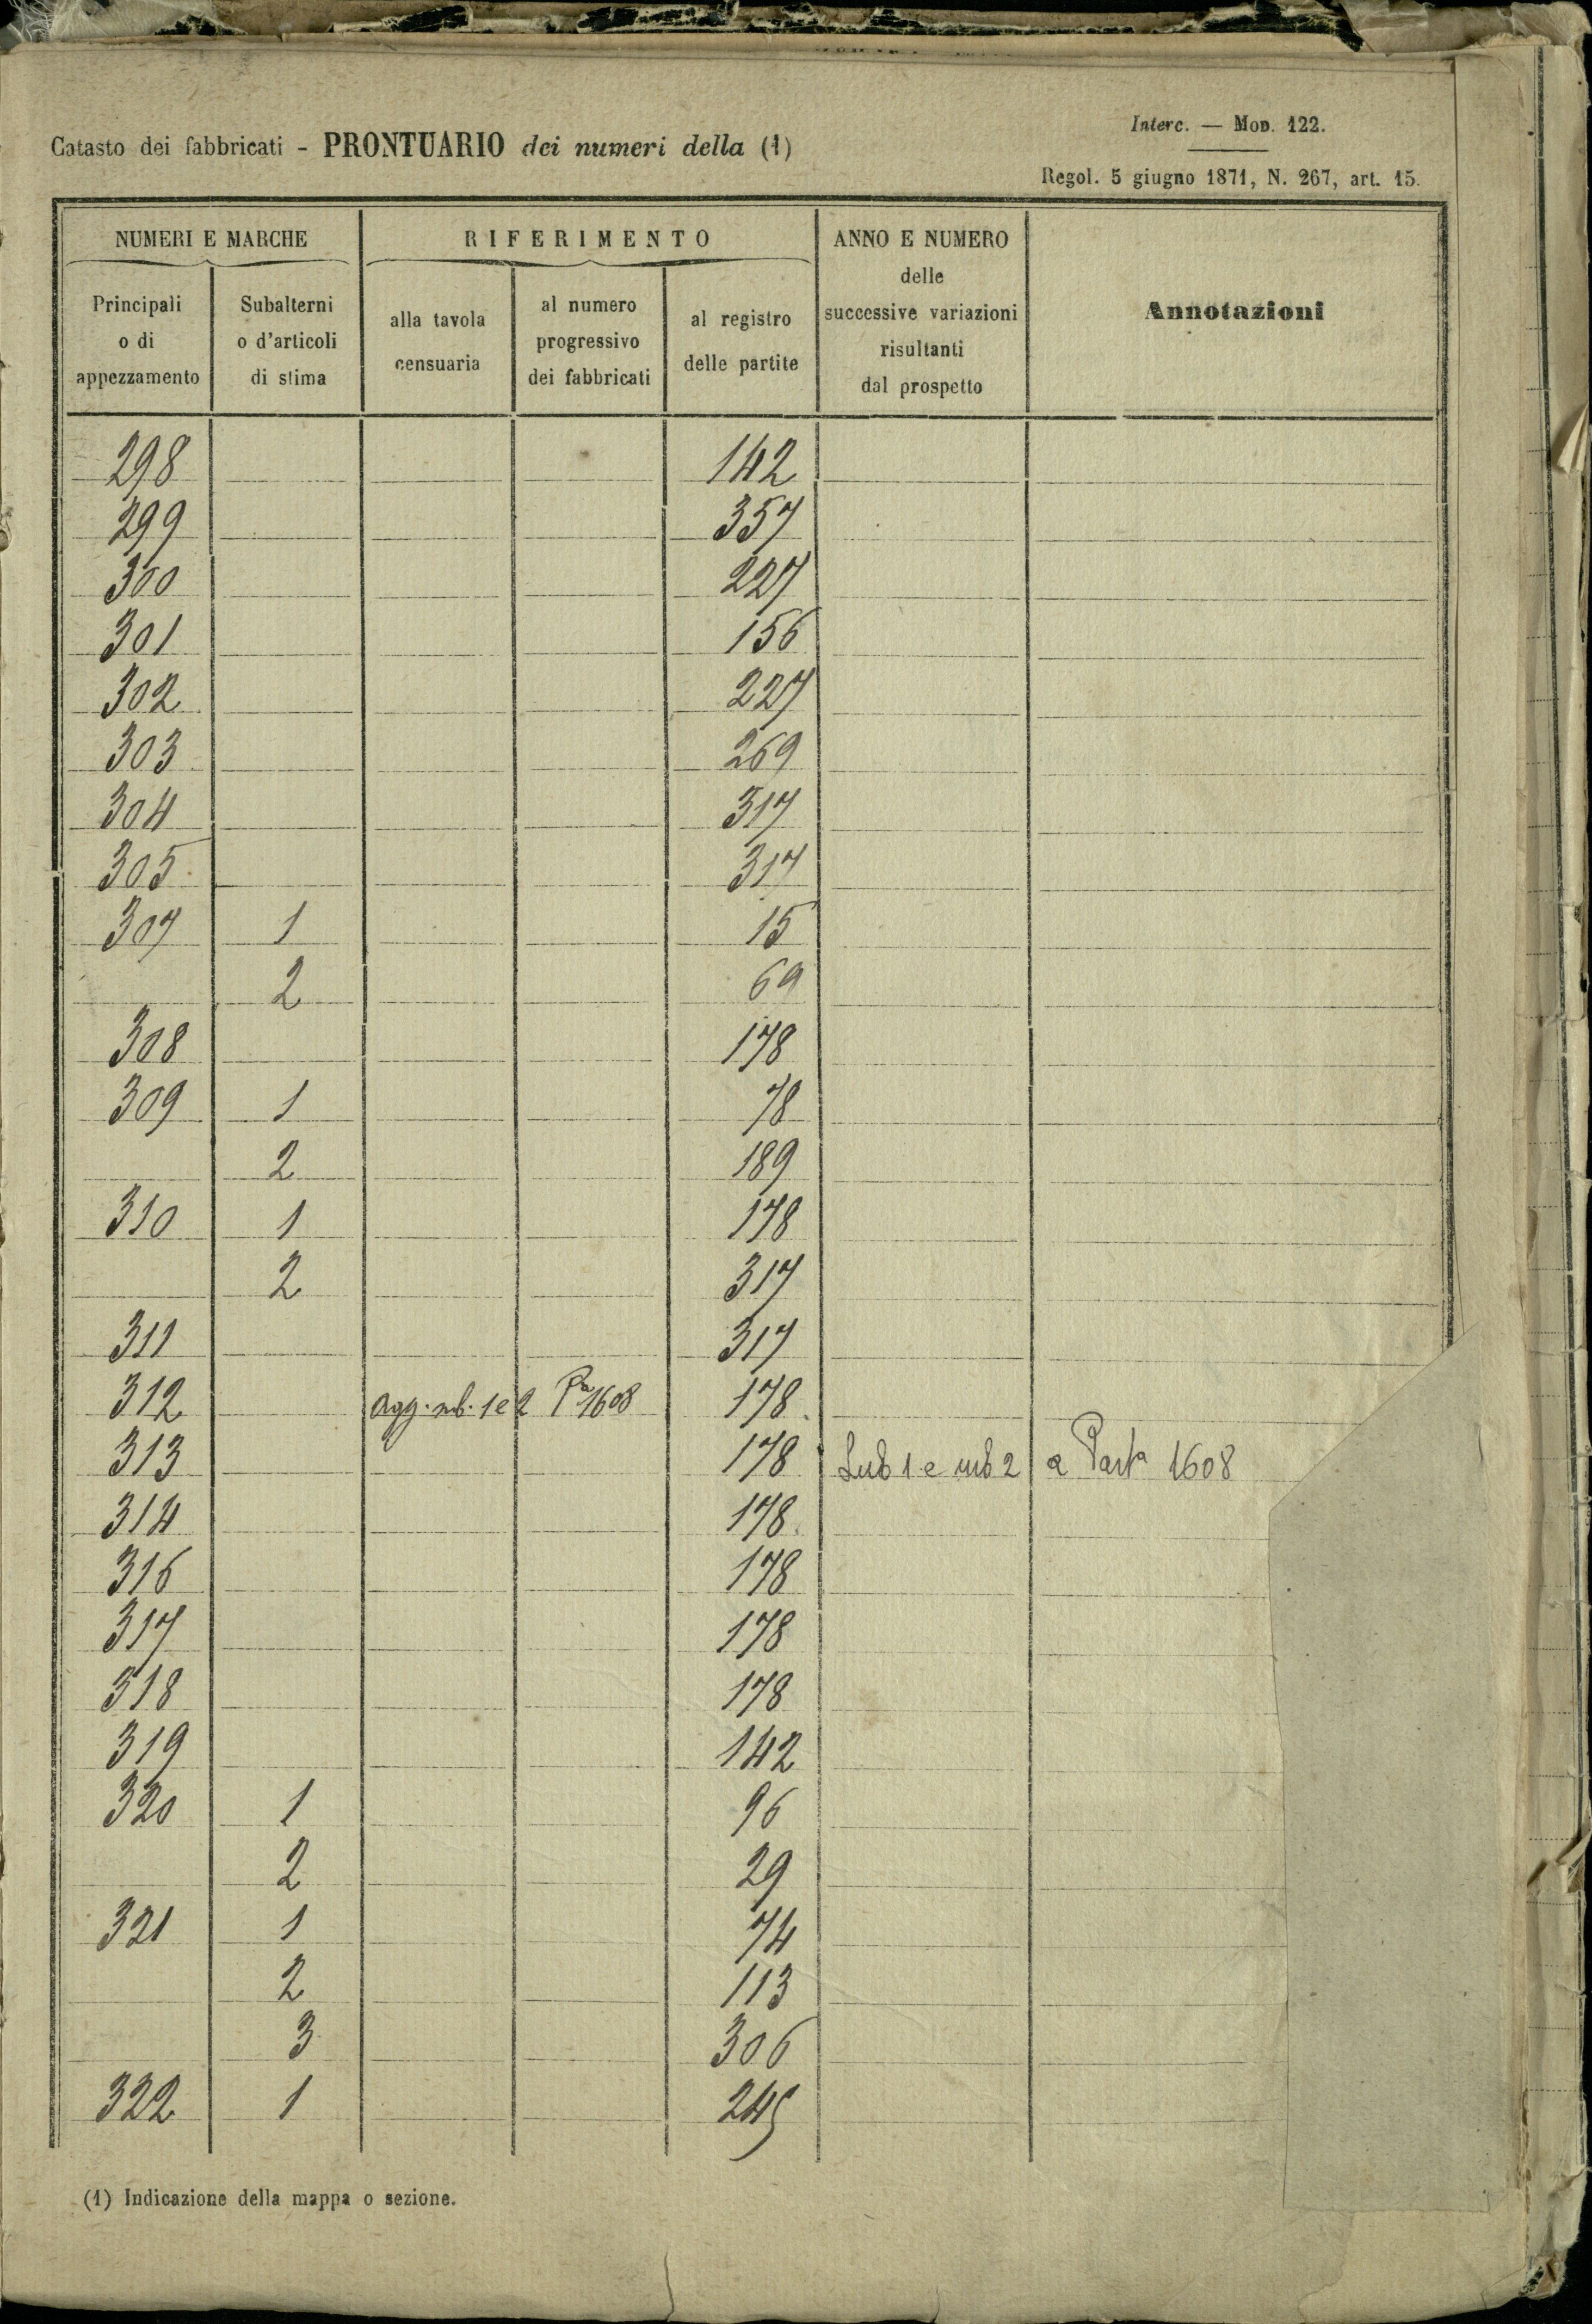 Interc. — Mod. 122.
Catasto dei fabbricati - PRONTUARIO dei numeri della (1)
Regol. 5 giugno 1871, N. 267, art. 15.
NUMERI E MARCHE RIFERIMENTO ANNO E NUMERO delle successive variazioni risultanti dal prospetto Annotazioni
Principali o di appezzamento Subalterni o d'articoli di stima alla tavola censuaria al numero progressivo dei fabbricati al registro delle partite
298 142
299 357
300 227
301 156
302 227
303 269
304 317
305 317
307 1 15
2 69
308 178
309 1 78
2 189
310 1 178
2 317
311 317
312 agg. sub. 1 e 2 Pa 1608 178
313 178 Sub 1 e sub 2 a Parta 1608
314 178
316 178
317 178
318 178
319 142
320 1 96
2 29
321 1 74
2 113
3 306
322 1 245
(1) Indicazione della mappa o sezione.